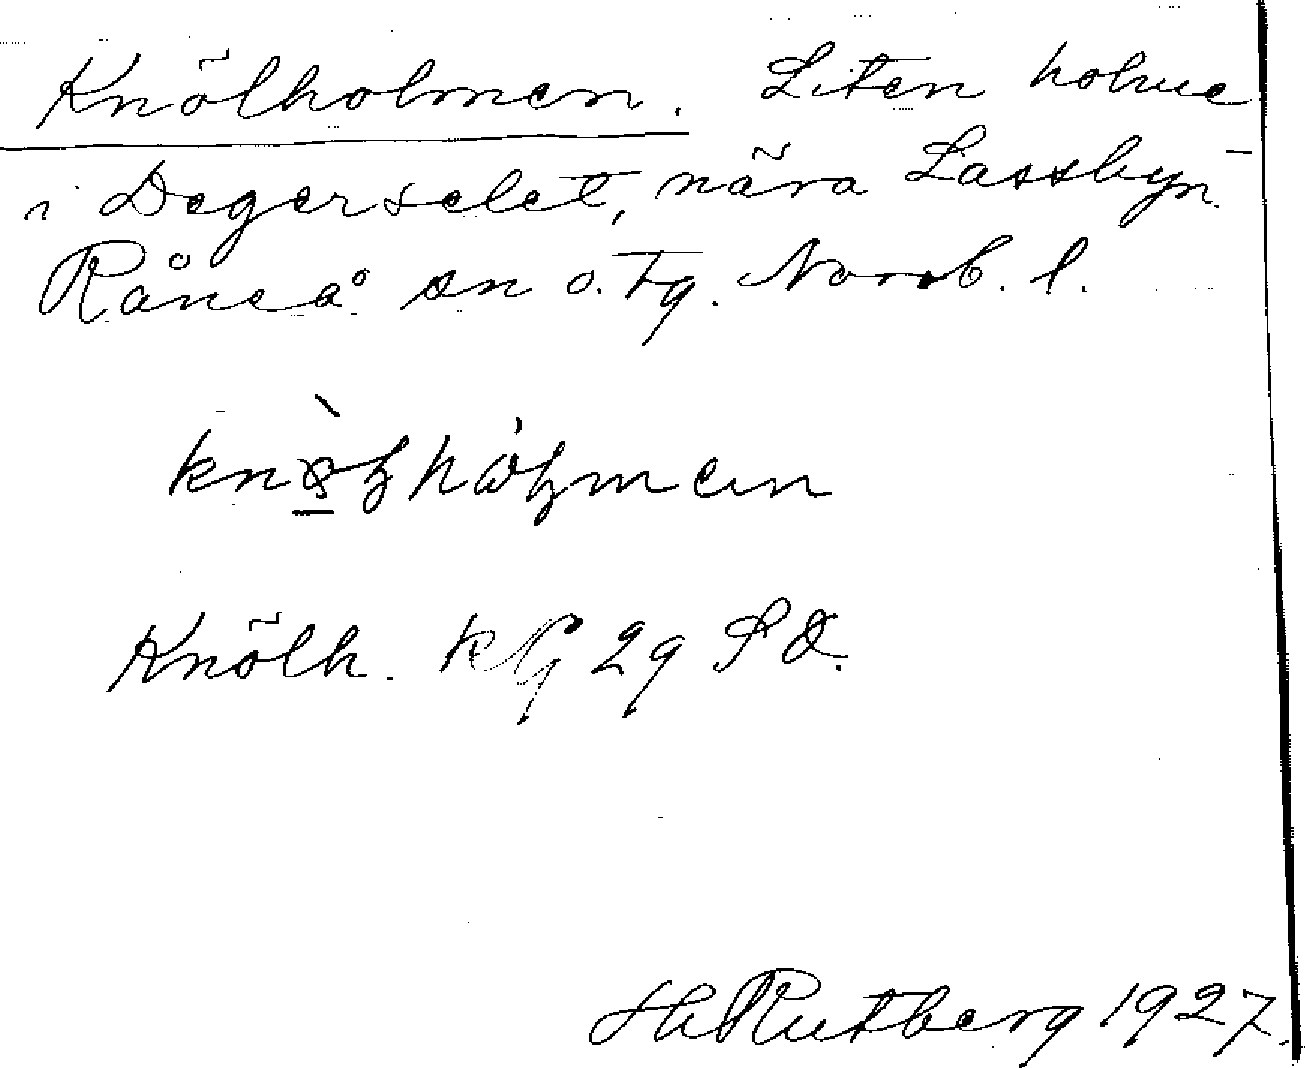 Knölholmen. Liten holme
i Degerselet, nära Lassbyn
Råneå sn o. tg. Norrb. l.
Knölh. 29
Hh Rutberg 1927.